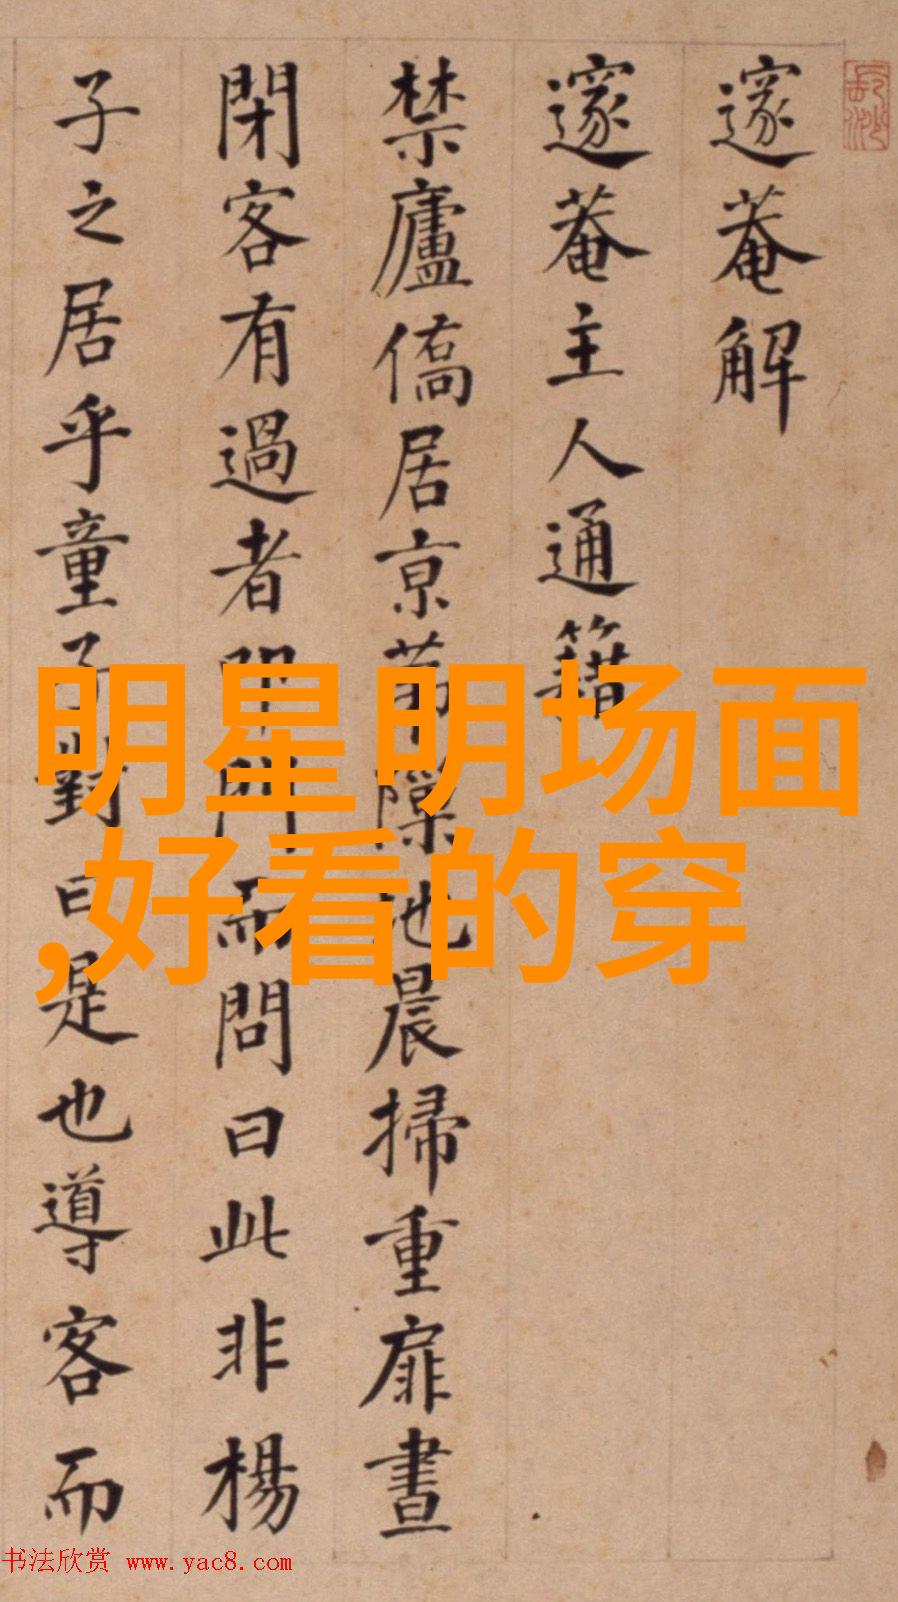 邃菴解
邃菴主人通籍
禁廬僑居京苐隙地晨掃重扉晝
閉客有過者叩門而問曰此非楊
子之居乎童子對曰是也導客而
明星明场面
,好看的穿
书法欣赏 www.yac8.com